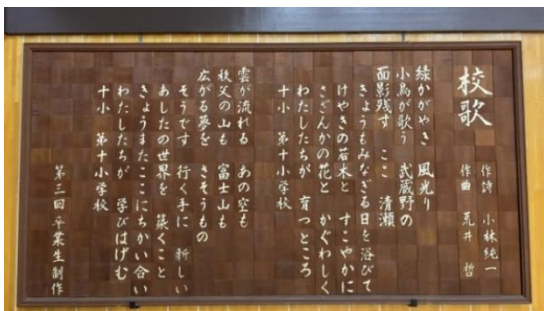 校歌
作詩 小林純一
作曲 荒井 哲
緑かがやき 風光り
小鳥が歌う 武蔵野の
面影残す ここ 清瀬
きょうもみなぎる日を浴びて
けやきの若木と すこやかに
さざんかの花と かぐわしく
わたしたちが 育つところ
十小 第十小学校
雲が流れる あの空も
秩父の山も 富士山も
広がる夢を さそうもの
そうです 行く手に 新しい
あしたの世界を 築くこと
きょうまたここにちかい合い
わたしたちが 学びはげむ
十小 第十小学校
第三回 卒業生制作